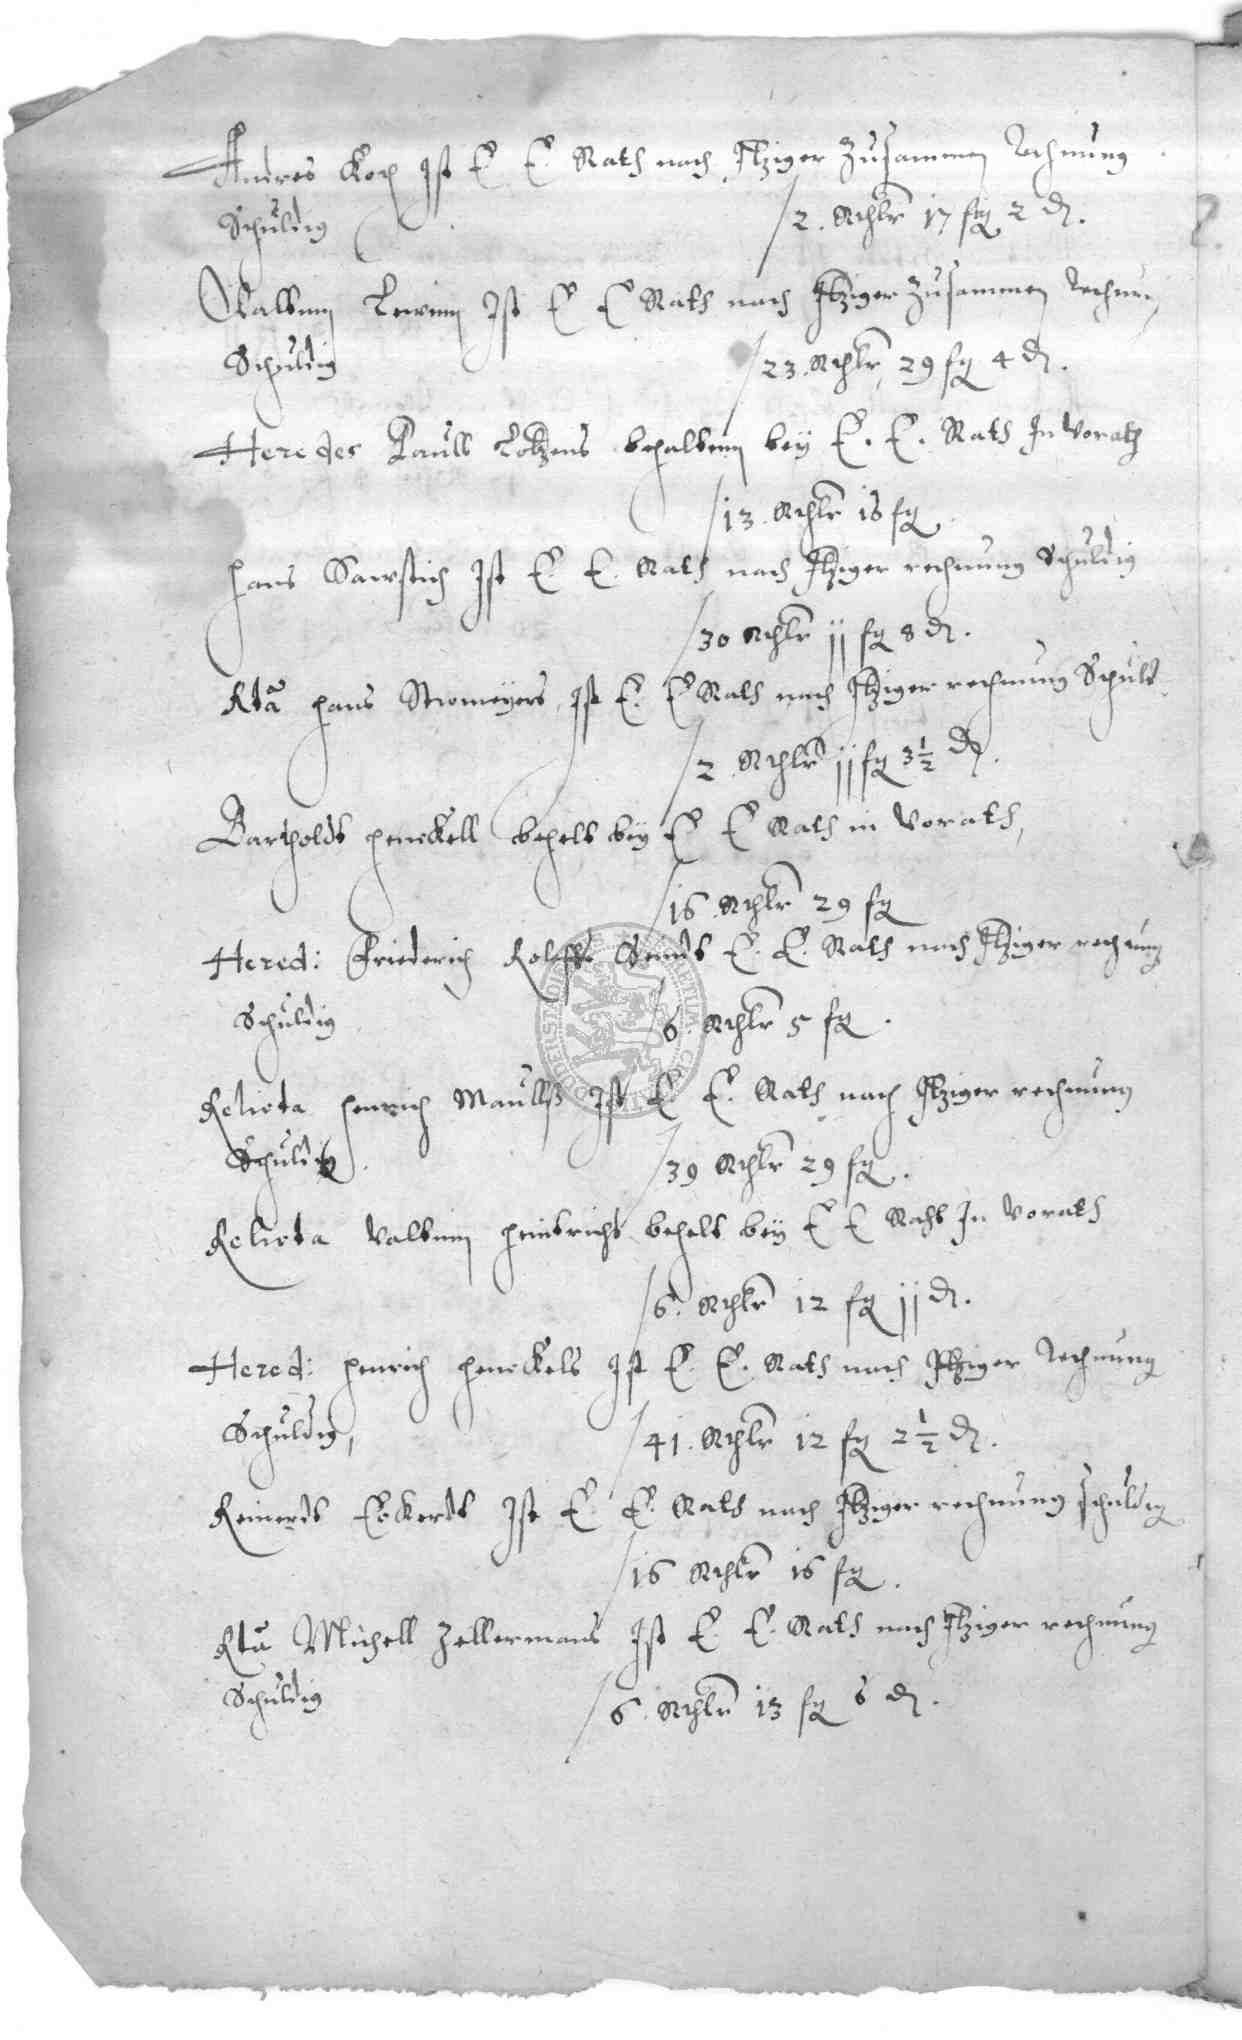 Andres Koch Ist E. E. Rath nach Itziger Zusammen Rechnung
Schuldig
2. Rthlr 17 fg 2 d.
Valtinn Ist E E Rath nach Itziger Zusammen Rechnung
Schuldig
23. Rthlr 29 fg 4 d.
Heredes Paull behaltenn bey E. E. Rath In Vorath
13. Rthlr 16 fg
Hans Ist E. E. Rath nach Itziger rechnung Schuldig
30 Rthlr jj fg 8 d.
Rta Hans Stromeyers Ist E. E Rath nach Itziger rechnung Schuld
2. Rthlr jj fg 3½ d.
Bartholdt Henckell behelt bey E E Rath in Vorath,
16 Rthlr 29 fg
Hered: Friederich Roleffs E. E. Rath nach Itziger rechnung
Schuldig
6. Rthlr 5 fg.
Relicta Henrich Maulls Ist E E. Rath nach Itziger rechnung
Schuldig.
39 Rthlr 29 fg.
Relicta Valtinn Heindrichs behelt bey E E Rath In Vorath
6. Rthlr 12 fg jj d.
Hered: Henrich Henckels Ist E. E. Rath nach Itziger Rechnung
Schuldig,
41. Rthlr 12 fg 2½ d.
Reinerdt Eckerdt Ist E. E. Rath nach Itziger rechnung schuldig
16 Rthlr 16 fg.
Rta Michell Zellermans Ist E. E. Rath nach Itziger rechnung
Schuldig
6. Rthlr 13 fg 6 d.